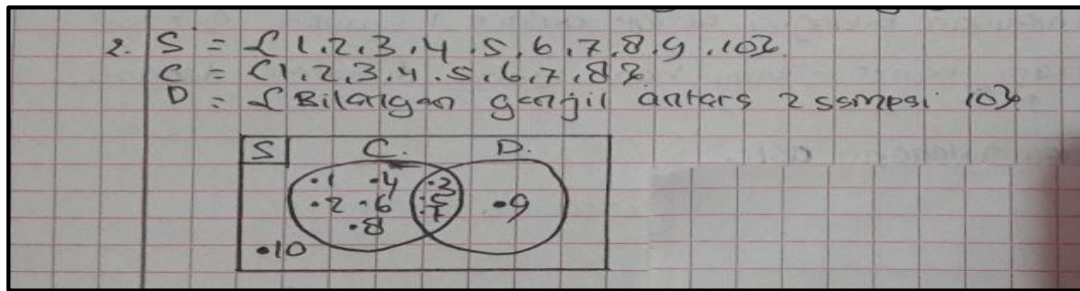 2. S = {1.2.3.4.5.6.7.8.9.10}.
C = {1.2.3.4.5.6.7.8}
D = {Bilangan ganjil antara 2 sampai 10}
S C. D.
•1 •4 •3
•2 •6 •5 •9
•7
•8
•10